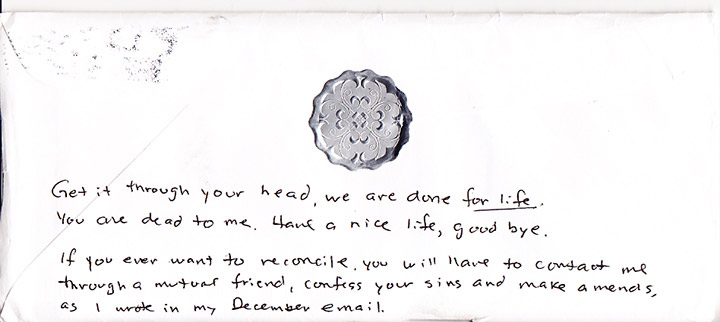 Get it through your head, we are done for life.
You are dead to me. Have a nice life, good bye.
If you ever want to reconcile, you will have to contact me
through a mutual friend, confess your sins and make amends,
as I wrote in my December email.